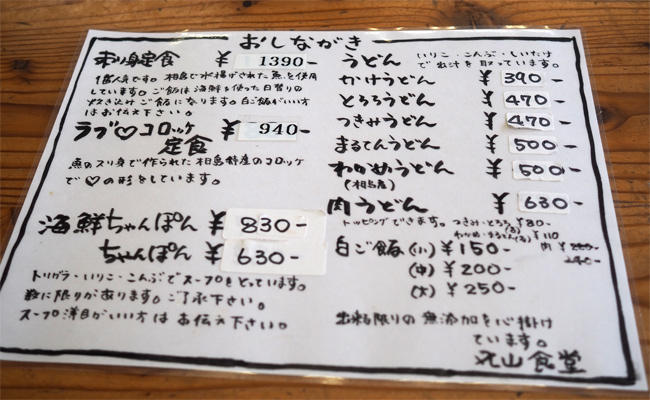 おしながき
刺身定食 ¥1390-
1番人気です。相島で水揚げされた魚を使用
しています。ご飯は海鮮を使った日替りの
炊き込みご飯になります。白ご飯がいい方
はお伝え下さい。
ラブ♡コロッケ
定食 ¥940-
魚のスリ身で作られた相島特産のコロッケ
で♡の形をしています。
海鮮ちゃんぽん ¥830-
ちゃんぽん ¥630-
トリガラ・いりこ・こんぶでスープをとっています。
数に限りがあります。ご了承下さい。
スープ濃目がいい方はお伝え下さい。
うどん いりこ・こんぶ・しいたけ
で出汁を取っています。
かけうどん ¥390-
とろろうどん ¥470-
つきみうどん ¥470-
まるてんうどん ¥500-
わかめうどん ¥500-
(相島産)
肉うどん ¥630-
トッピングできます。つきみ・とろろ¥80-
わかめ・まるてん(各)¥110
肉
240-
白ご飯 (小) ¥150-
(中) ¥200-
(大) ¥250-
出来る限りの無添加を心掛け
ています。
丸山食堂